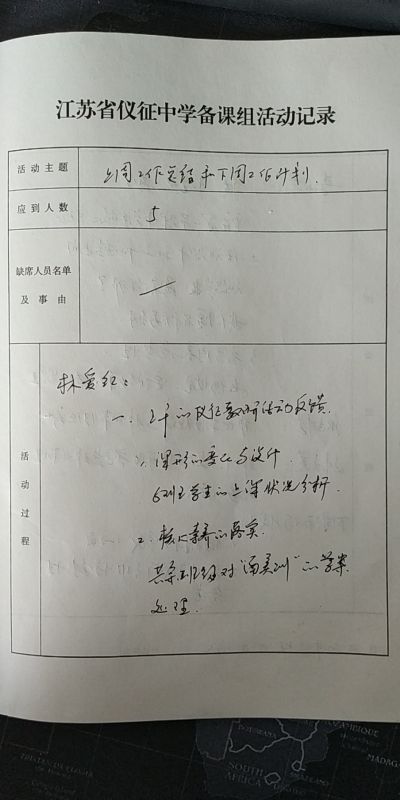 江苏省仪征中学备课组活动记录
活动主题 上周工作总结和下周工作计划.
应到人数 5
缺席人员名单
及事由
活动过程
林爱红:
一. 上午的仪征教研活动反馈.
1. 课形的变化与设计.
班学生的上课状况分析.
2. 核心素养的落实.
班级对 的学案
处理.
SOUTH
AFRICA
MOZAMBIQUE